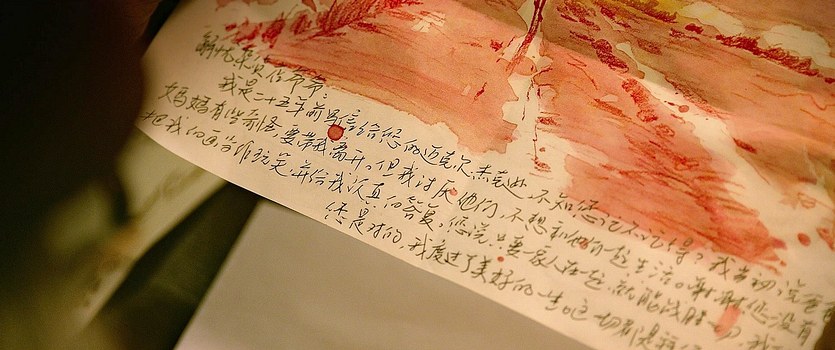 解忧杂货俗爷爷：
我是二十五年前写信给您的迈克尔杰克逊，不知您记不记得？我当初，说爸爸
妈妈有些奇怪，要带我离开，但我讨厌他们，不想和他们一起生活。谢谢您没有
把我的画当作玩笑，并给我认真的答复，您说只要家人在一起，就能战胜一切，我
您是对的，我度过了美好的一生。这一切都是